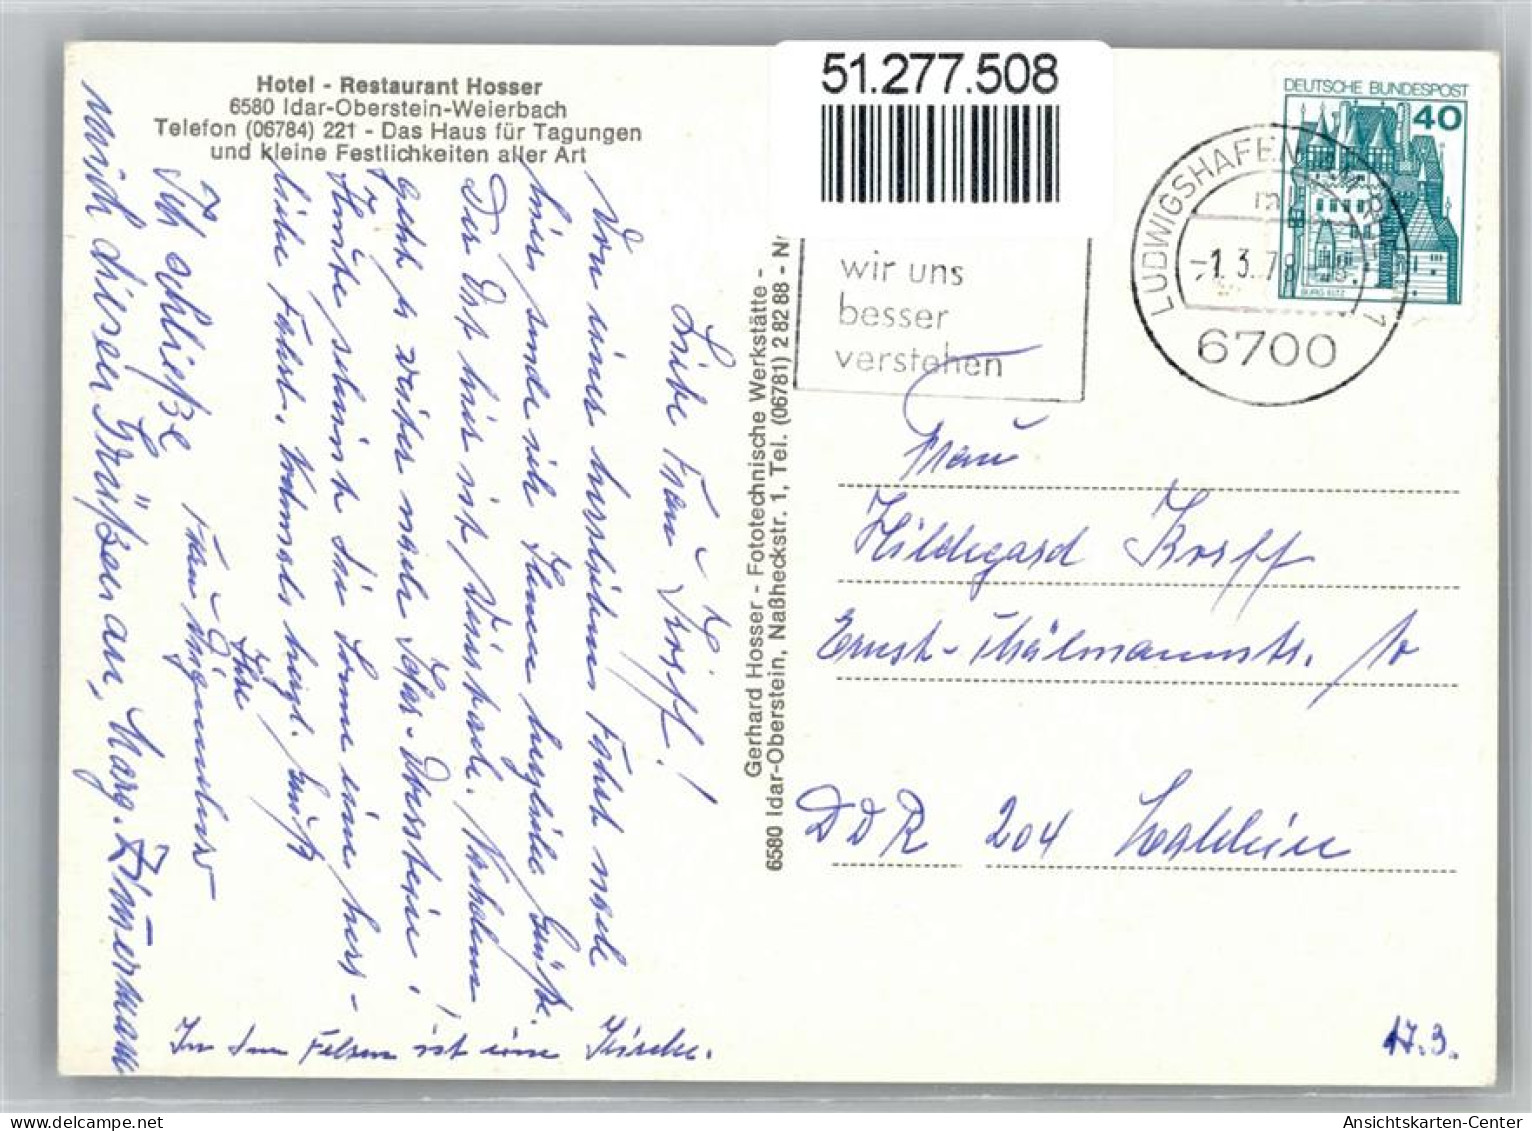 Hotel - Restaurant Hosser
6580 Idar-Oberstein-Weierbach
Telefon (06784) 221 - Das Haus für Tagungen
und kleine Festlichkeiten aller Art
51.277.508
wir uns
besser
verstehen
DEUTSCHE BUNDESPOST
40
BURG ELTZ
LUDWIGSHAFEN AM RHEIN 1
-1.3.7
6700
Gerhard Hosser - Fototechnische Werkstätte -
6580 Idar-Oberstein, Naßheckstr. 1, Tel. (06781) 2 82 88 - N
Liebe Frau Korff!
Von einer herrlichen Fahrt nach
hier sende ich Ihnen herzliche Grüße.
Der Ort hier ist Kirn
geht es weiter nach Idar-Oberstein!
Heute scheint die Sonne eine herr-
liche Fahrt. Nochmals herzl. Grüße
Ihre
Frau
Ich schließe
mich diesen Grüßen an, Marg. Zimmermann
In den Felsen ist eine Kirche.
Frau
Hildegard Korff
Ernst-Thälmannstr. 10
DDR 204 Malchin
17.3.